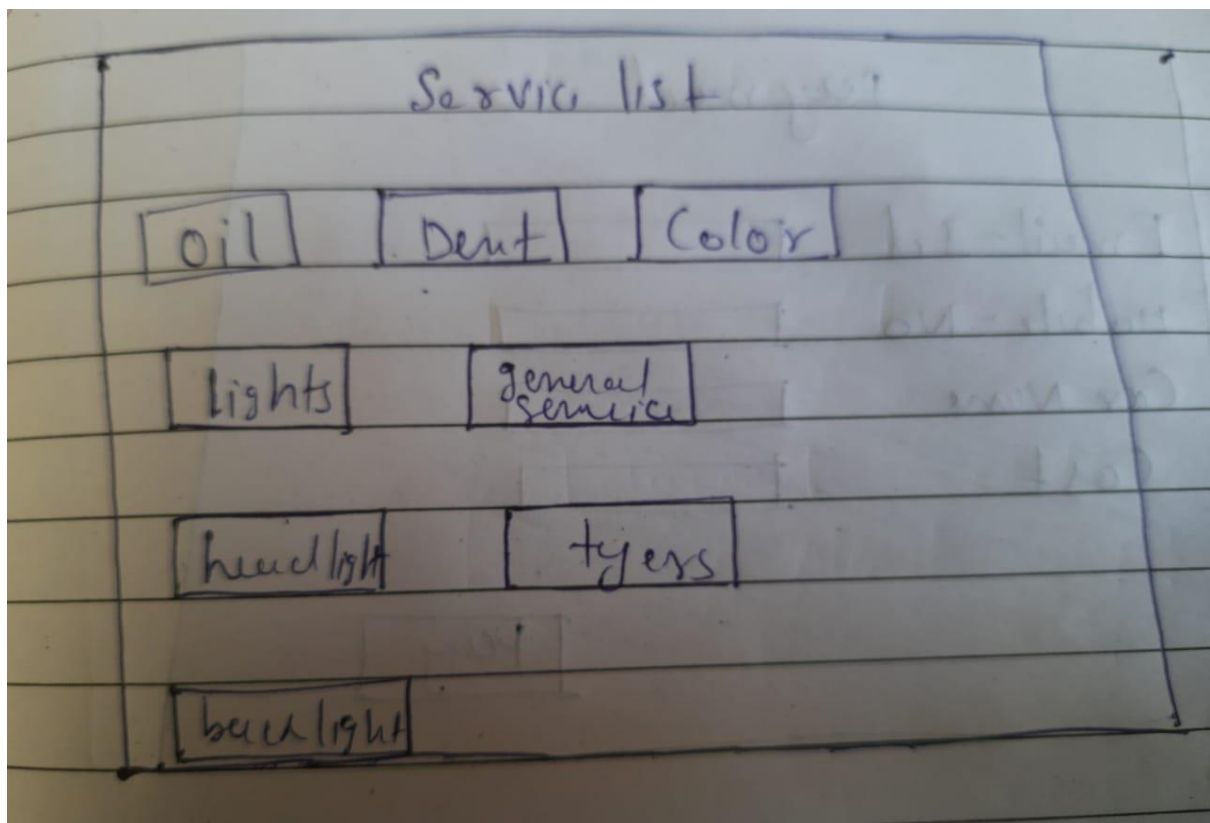 Servic list
oil Dent Color
lights general
service
headlight tyers
backlight